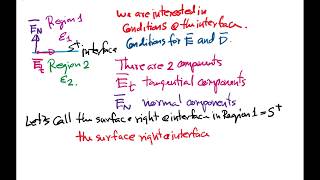 Region 1
ε1
E̅N
S+ interface
E̅t Region 2
ε2.
We are interested in
Conditions @ the interface.
Conditions for E̅ and D̅.
There are 2 componts
E̅t tangential components
E̅N normal components
Let's call the surface right @ interface in Region 1 = S+
the surface right @ interface